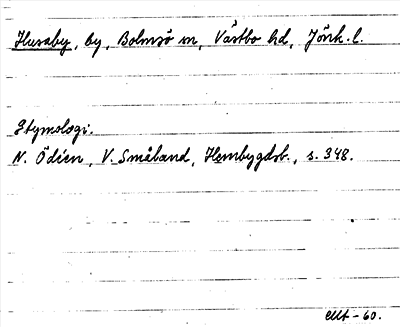 Husaby, by, Bolmsö sn, Västbo hd, Jönk. l.
Etymologi.
N. Ödéen, V. Småland, Hembygdsb., s. 348.
-60.